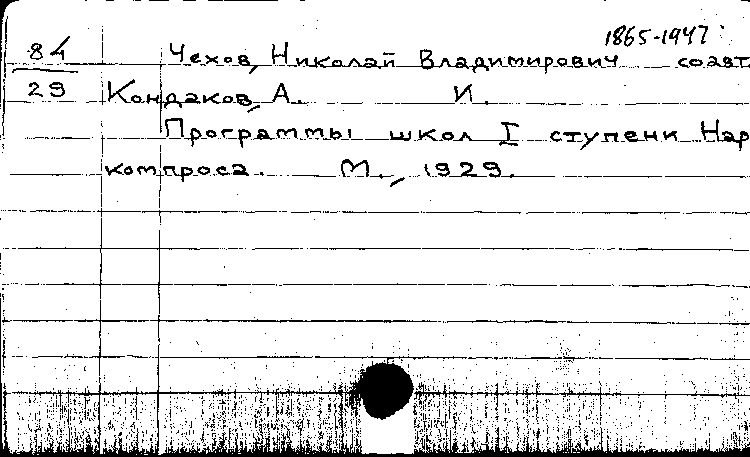 1865-1947
84 Чехов, Николай Владимирович соавт
29 Кондаков, А. И.
Программы школ I ступени Нар
компроса. М., 1929.